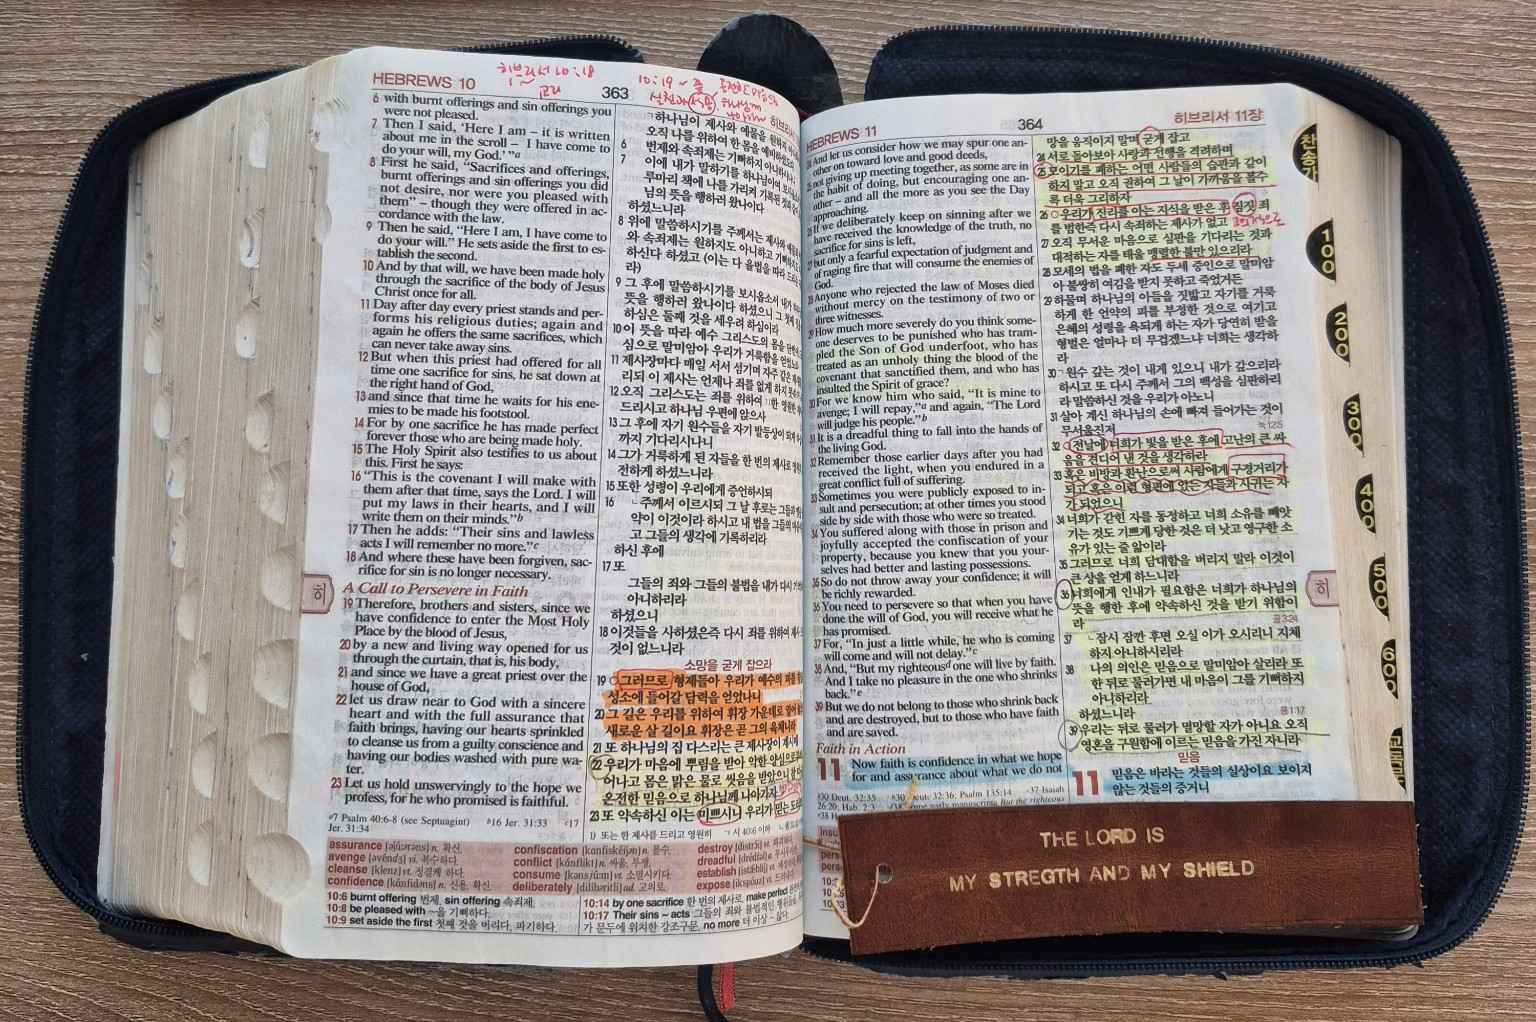 HEBREWS 10
히브리서 10:18
363
6 with burnt offerings and sin offerings you
were not pleased.
7 Then I said, ‘Here I am – it is written
about me in the scroll – I have come to
do your will, my God.’ ”a
8 First he said, “Sacrifices and offerings,
burnt offerings and sin offerings you did
not desire, nor were you pleased with
them” – though they were offered in ac-
cordance with the law.
9 Then he said, “Here I am, I have come to
do your will.” He sets aside the first to es-
tablish the second.
10 And by that will, we have been made holy
through the sacrifice of the body of Jesus
Christ once for all.
11 Day after day every priest stands and per-
forms his religious duties; again and
again he offers the same sacrifices, which
can never take away sins.
12 But when this priest had offered for all
time one sacrifice for sins, he sat down at
the right hand of God,
13 and since that time he waits for his ene-
mies to be made his footstool.
14 For by one sacrifice he has made perfect
forever those who are being made holy.
15 The Holy Spirit also testifies to us about
this. First he says:
16 “This is the covenant I will make with
them after that time, says the Lord. I will
put my laws in their hearts, and I will
write them on their minds.”b
17 Then he adds: “Their sins and lawless
acts I will remember no more.”c
18 And where these have been forgiven, sac-
rifice for sin is no longer necessary.
A Call to Persevere in Faith
19 Therefore, brothers and sisters, since we
have confidence to enter the Most Holy
Place by the blood of Jesus,
20 by a new and living way opened for us
through the curtain, that is, his body,
21 and since we have a great priest over the
house of God,
22 let us draw near to God with a sincere
heart and with the full assurance that
faith brings, having our hearts sprinkled
to cleanse us from a guilty conscience and
having our bodies washed with pure wa-
ter.
23 Let us hold unswervingly to the hope we
profess, for he who promised is faithful.
a7 Psalm 40:6-8 (see Septuagint) b16 Jer. 31:33 c17
Jer. 31:34
하나님이 제사와 예물을 원하지
오직 나를 위하여 한 몸을 예비하셨도다
6 번제와 속죄제는 기뻐하지 아니하시나니
7 이에 내가 말하기를 하나님이여
루마리 책에 나를 가리켜 기록된 것과
님의 뜻을 행하러 왔나이다
하셨느니라
8 위에 말씀하시기를 주께서는 제사와
와 속죄제는 원하지도 아니하고
하신다 하셨고 (이는 다 율법을 따라
라)
9 그 후에 말씀하시기를 보시옵소서 내가
뜻을 행하러 왔나이다 하셨으니 그 첫째
하심은 둘째 것을 세우려 하심이라
10 이 뜻을 따라 예수 그리스도의 몸을
심으로 말미암아 우리가 거룩함을
11 제사장마다 매일 서서 섬기며 자주 같은
리되 이 제사는 언제나 죄를 없게 하지
12 오직 그리스도는 죄를 위하여 한 영원한
드리시고 하나님 우편에 앉으사
13 그 후에 자기 원수들을 자기 발등상이
까지 기다리시나니
14 그가 거룩하게 된 자들을 한 번의 제사로
전하게 하셨느니라
15 또한 성령이 우리에게 증언하시되
16 주께서 이르시되 그 날 후로는
약이 이것이라 하시고 내 법을
고 그들의 생각에 기록하리라
하신 후에
17 또
그들의 죄와 그들의 불법을 내가 다시
아니하리라
하셨으니
18 이것들을 사하셨은즉 다시 죄를 위하여
것이 없느니라
소망을 굳게 잡으라
19 그러므로 형제들아 우리가 예수의 피를
성소에 들어갈 담력을 얻었나니
20 그 길은 우리를 위하여 휘장 가운데로
새로운 살 길이요 휘장은 곧 그의 육체니라
21 또 하나님의 집 다스리는 큰 제사장이 계시매
22 우리가 마음에 뿌림을 받아 악한 양심으로부터
어나고 몸은 맑은 물로 씻음을 받았으니
온전한 믿음으로 하나님께 나아가자
23 또 약속하신 이는 미쁘시니 우리가 믿는
assurance n. 확신.
avenge vt. 복수하다.
cleanse vt. 정결케 하다.
confidence n. 신용, 확신.
confiscation n. 몰수.
conflict n. 싸움, 투쟁.
consume vt. 소멸시키다.
deliberately ad. 고의로.
destroy
dreadful
establish
expose
10:6 burnt offering 번제, sin offering 속죄제.
10:8 be pleased with ~을 기뻐하다.
10:9 set aside the first 첫째 것을 버리다, 파기하다.
10:14 by one sacrifice 한 번의 제사로, make perfect
10:17 Their sins ~ acts 그들의 죄와 불법적인
가 문두에 위치한 강조구문, no more 더 이상 ~ 않다.
히
HEBREWS 11
364
히브리서 11장
24 And let us consider how we may spur one an-
other on toward love and good deeds,
25 not giving up meeting together, as some are in
the habit of doing, but encouraging one an-
other – and all the more as you see the Day
approaching.
26 If we deliberately keep on sinning after we
have received the knowledge of the truth, no
sacrifice for sins is left,
27 but only a fearful expectation of judgment and
of raging fire that will consume the enemies of
God.
28 Anyone who rejected the law of Moses died
without mercy on the testimony of two or
three witnesses.
29 How much more severely do you think some-
one deserves to be punished who has tram-
pled the Son of God underfoot, who has
treated as an unholy thing the blood of the
covenant that sanctified them, and who has
insulted the Spirit of grace?
30 For we know him who said, “It is mine to
avenge; I will repay,”a and again, “The Lord
will judge his people.”b
31 It is a dreadful thing to fall into the hands of
the living God.
32 Remember those earlier days after you had
received the light, when you endured in a
great conflict full of suffering.
33 Sometimes you were publicly exposed to in-
sult and persecution; at other times you stood
side by side with those who were so treated.
34 You suffered along with those in prison and
joyfully accepted the confiscation of your
property, because you knew that you your-
selves had better and lasting possessions.
35 So do not throw away your confidence; it will
be richly rewarded.
36 You need to persevere so that when you have
done the will of God, you will receive what he
has promised.
37 For, “In just a little while, he who is coming
will come and will not delay.”c
38 And, “But my righteousd one will live by faith.
And I take no pleasure in the one who shrinks
back.”e
39 But we do not belong to those who shrink back
and are destroyed, but to those who have faith
and are saved.
Faith in Action
11 Now faith is confidence in what we hope
for and assurance about what we do not
망을 움직이지 말며 굳게 잡고
24 서로 돌아보아 사랑과 선행을 격려하며
25 모이기를 폐하는 어떤 사람들의 습관과 같이
하지 말고 오직 권하여 그 날이 가까움을 볼수
록 더욱 그리하자
26 우리가 진리를 아는 지식을 받은 후 짐짓 죄
를 범한즉 다시 속죄하는 제사가 없고
27 오직 무서운 마음으로 심판을 기다리는 것과
대적하는 자를 태울 맹렬한 불만 있으리라
28 모세의 법을 폐한 자도 두세 증인으로 말미암
아 불쌍히 여김을 받지 못하고 죽었거든
29 하물며 하나님의 아들을 짓밟고 자기를 거룩
하게 한 언약의 피를 부정한 것으로 여기고
은혜의 성령을 욕되게 하는 자가 당연히 받을
형벌은 얼마나 더 무겁겠느냐 너희는 생각하
라
30 원수 갚는 것이 내게 있으니 내가 갚으리라
하시고 또 다시 주께서 그의 백성을 심판하리
라 말씀하신 것을 우리가 아노니
31 살아 계신 하나님의 손에 빠져 들어가는 것이
무서울진저
32 전날에 너희가 빛을 받은 후에 고난의 큰 싸
움을 견디어 낸 것을 생각하라
33 혹은 비방과 환난으로써 사람에게 구경거리가
되고 혹은 이런 형편에 있는 자들과 사귀는 자
가 되었으니
34 너희가 갇힌 자를 동정하고 너희 소유를 빼앗
기는 것도 기쁘게 당한 것은 더 낫고 영구한 소
유가 있는 줄 앎이라
35 그러므로 너희 담대함을 버리지 말라 이것이
큰 상을 얻게 하느니라
36 너희에게 인내가 필요함은 너희가 하나님의
뜻을 행한 후에 약속하신 것을 받기 위함이
라
37 잠시 잠깐 후면 오실 이가 오시리니 지체
하지 아니하시리라
38 나의 의인은 믿음으로 말미암아 살리라 또
한 뒤로 물러가면 내 마음이 그를 기뻐하지
아니하리라
하셨느니라
39 우리는 뒤로 물러가 멸망할 자가 아니요 오직
영혼을 구원함에 이르는 믿음을 가진 자니라
믿음
11 믿음은 바라는 것들의 실상이요 보이지
않는 것들의 증거니
히
찬송가
100
200
300
400
500
600
교독문
THE LORD IS
MY STREGTH AND MY SHIELD